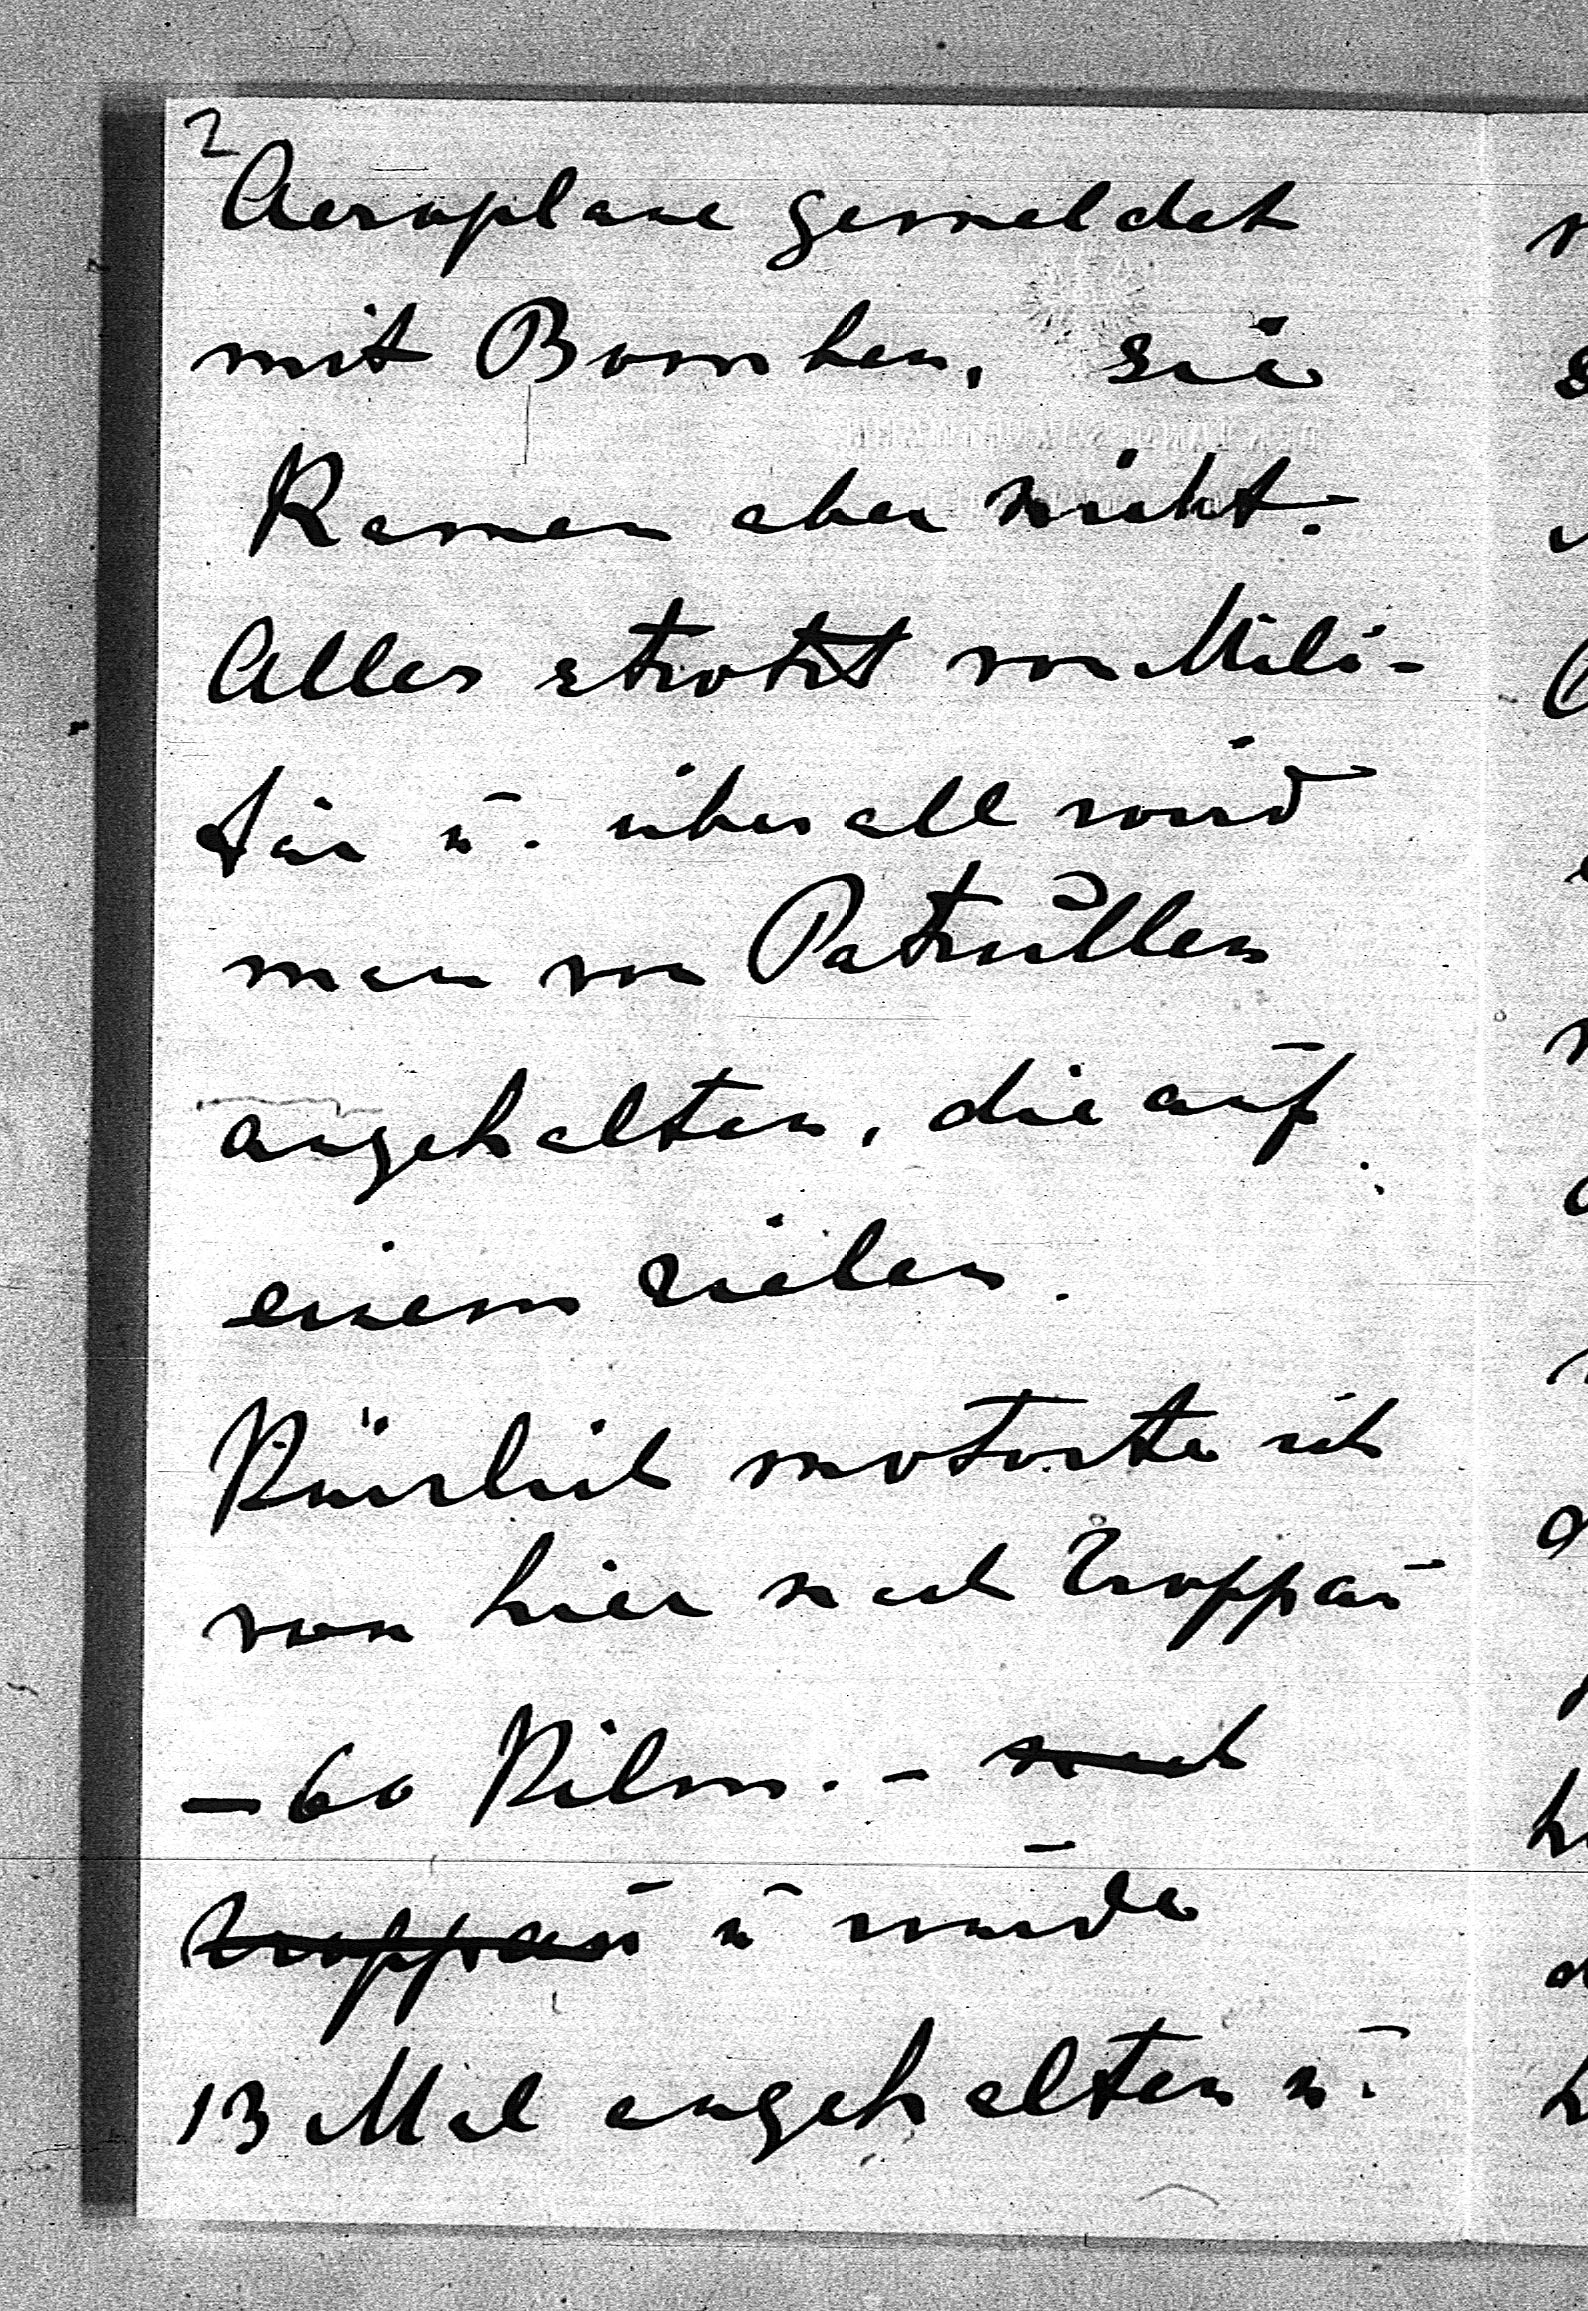 2
Aeroplane gemeldet
mit Bomben, sie
Kamen aber nicht.
Alles strotzt von Mili-
tär u. überall wird
man von Patrullen
angehalten, die auf
einem zielen.
Kürzlich motorte ich
von hier nach Troppau
- 60 Kilm. - nach
Troppau u wurde
13 Mal angehalten u.